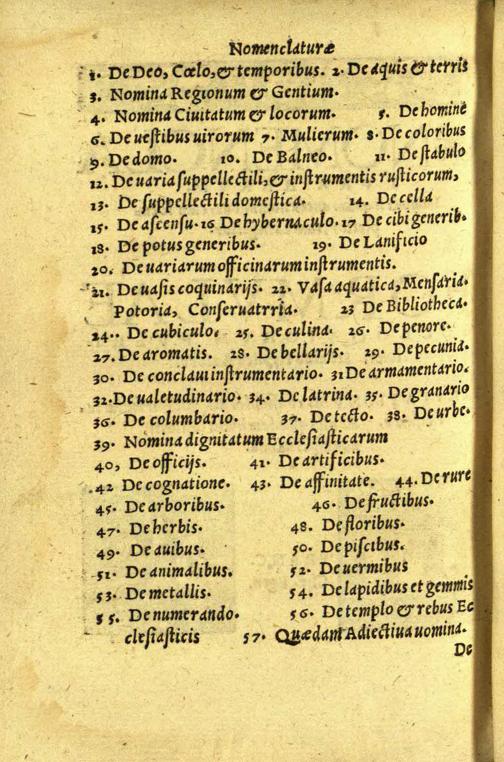 Nomenclaturæ
1. De Deo, Cœlo, & temporibus. 2. De aquis & terris
3. Nomina Regionum & Gentium.
4. Nomina Ciuitatum & locorum. 5. De homine
6. De uestibus uirorum 7. Mulierum. 8. De coloribus
9. De domo. 10. De Balneo. 11. De stabulo
12. De uaria suppellectili, & instrumentis rusticorum,
13. De suppellectili domestica. 14. De cella
15. De ascensu. 16 De hybernaculo. 17 De cibi generib.
18. De potus generibus. 19. De Lanificio
20. De uariarum officinarum instrumentis.
21. De uasis coquinarijs. 22. Vasa aquatica, Mensaria.
Potoria, Conseruatrria. 23 De Bibliotheca.
24.. De cubiculo. 25. De culina. 26. De penore.
27. De aromatis. 28. De bellarijs. 29. De pecunia.
30. De conclaui instrumentario. 31 De armamentario.
32. De ualetudinario. 34. De latrina. 35. De granario
36. De columbario. 37. De tecto. 38. De urbe.
39. Nomina dignitatum Ecclesiasticarum
40, De officijs. 41. De artificibus.
42 De cognatione. 43. De affinitate. 44. De rure
45. De arboribus. 46. De fructibus.
47. De herbis. 48. De floribus.
49. De auibus. 50. De piscibus.
51. De animalibus. 52. De uermibus
53. De metallis. 54. De lapidibus et gemmis
55. De numerando. 56. De templo & rebus Ec
clesiasticis 57. Quædam Adiectiua uomina.
De